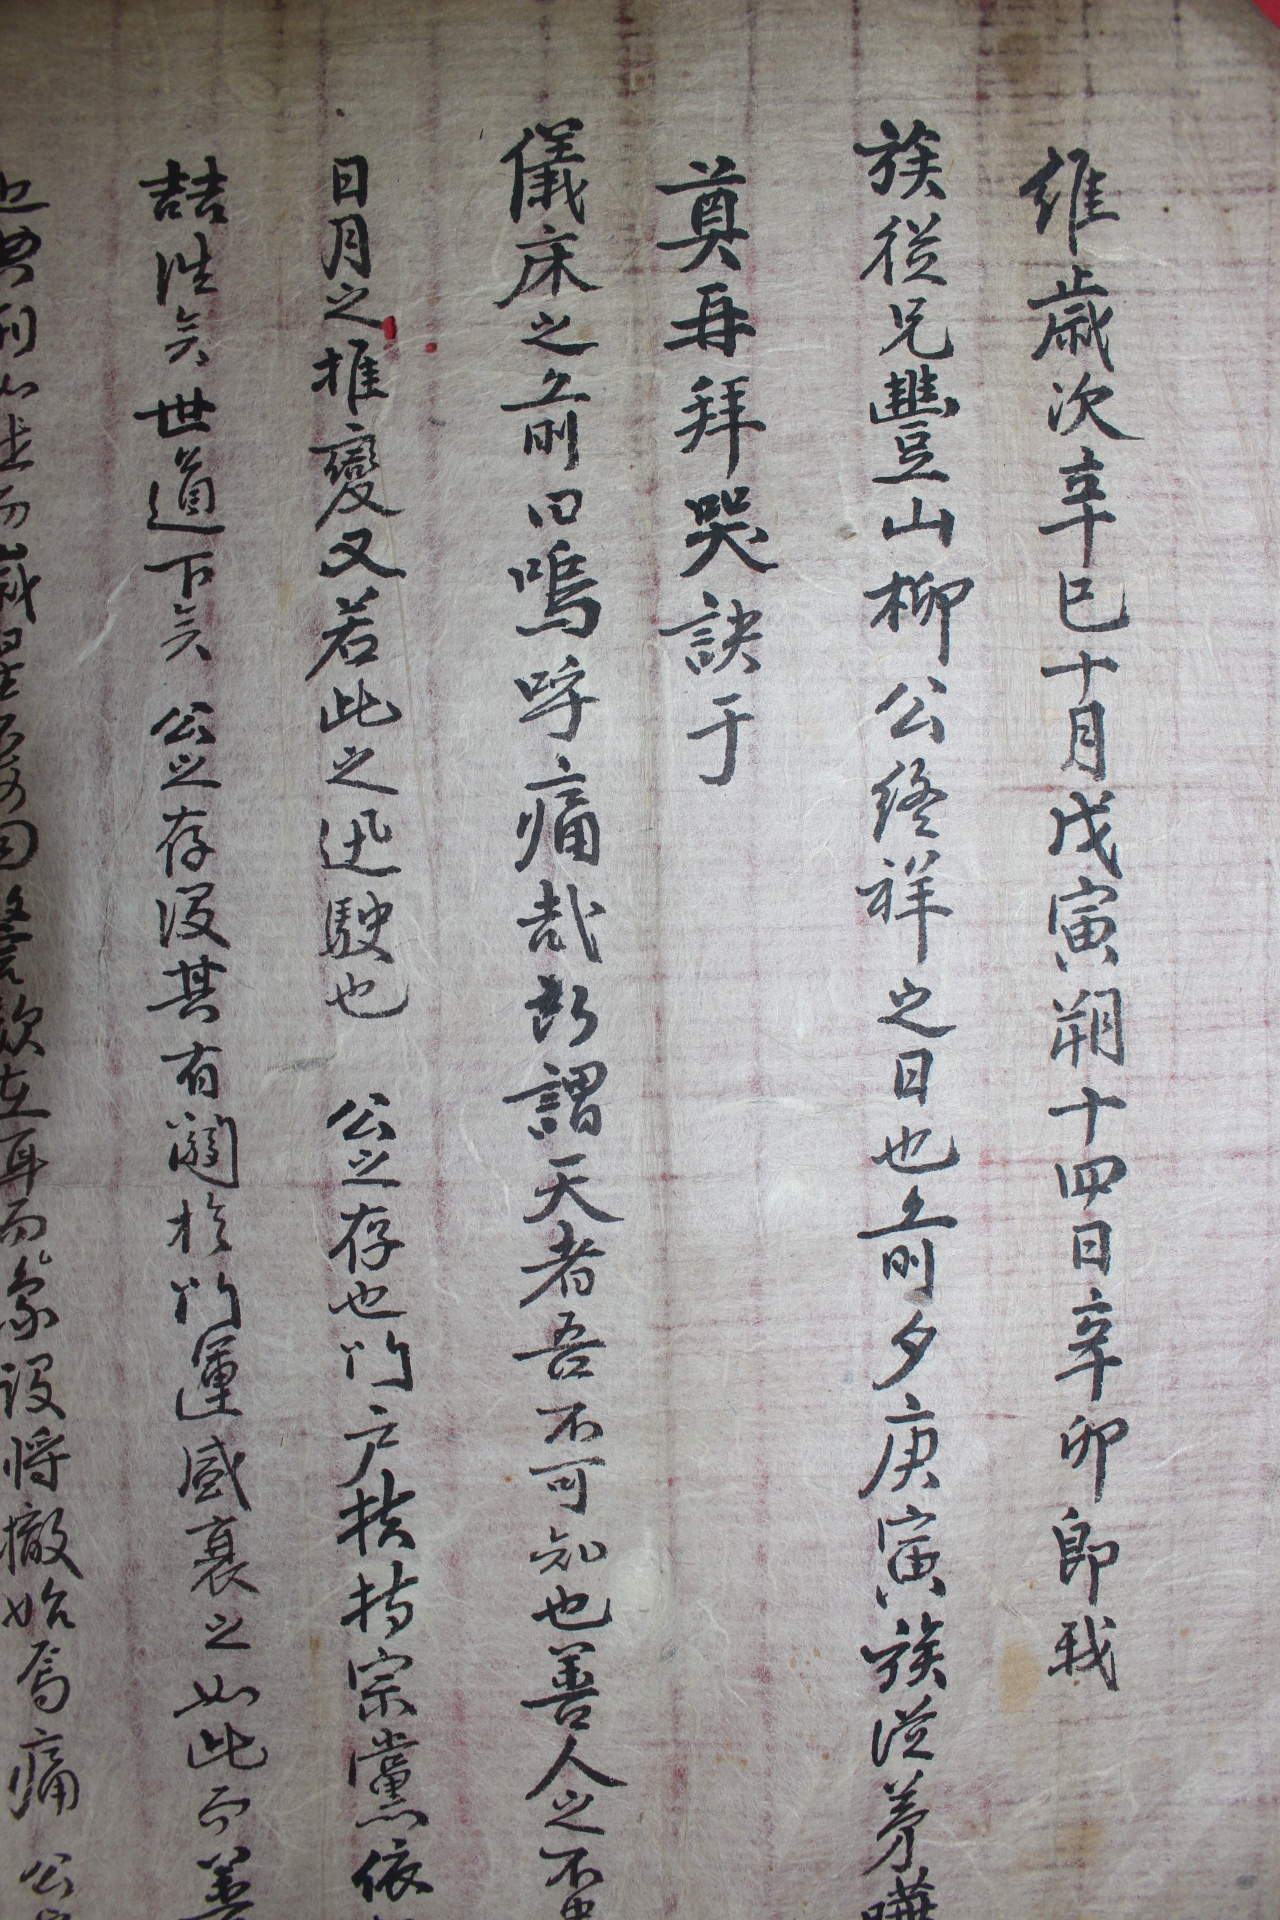 維歲次辛巳十月戊寅朔十四日辛卯卽我
族從兄豐山柳公終祥之日也前夕庚寅族從弟
奠再拜哭訣于
儀床之前曰嗚呼痛哉所謂天者吾不可知也善人之不
日月之推變又若此之迅駛也 公之存也門戶扶持宗黨依
喆徃矣世道下矣 公之存沒其有關於門運盛衰之如此而善
典刑而歲星 警欬在耳而象設將撤始焉痛 公